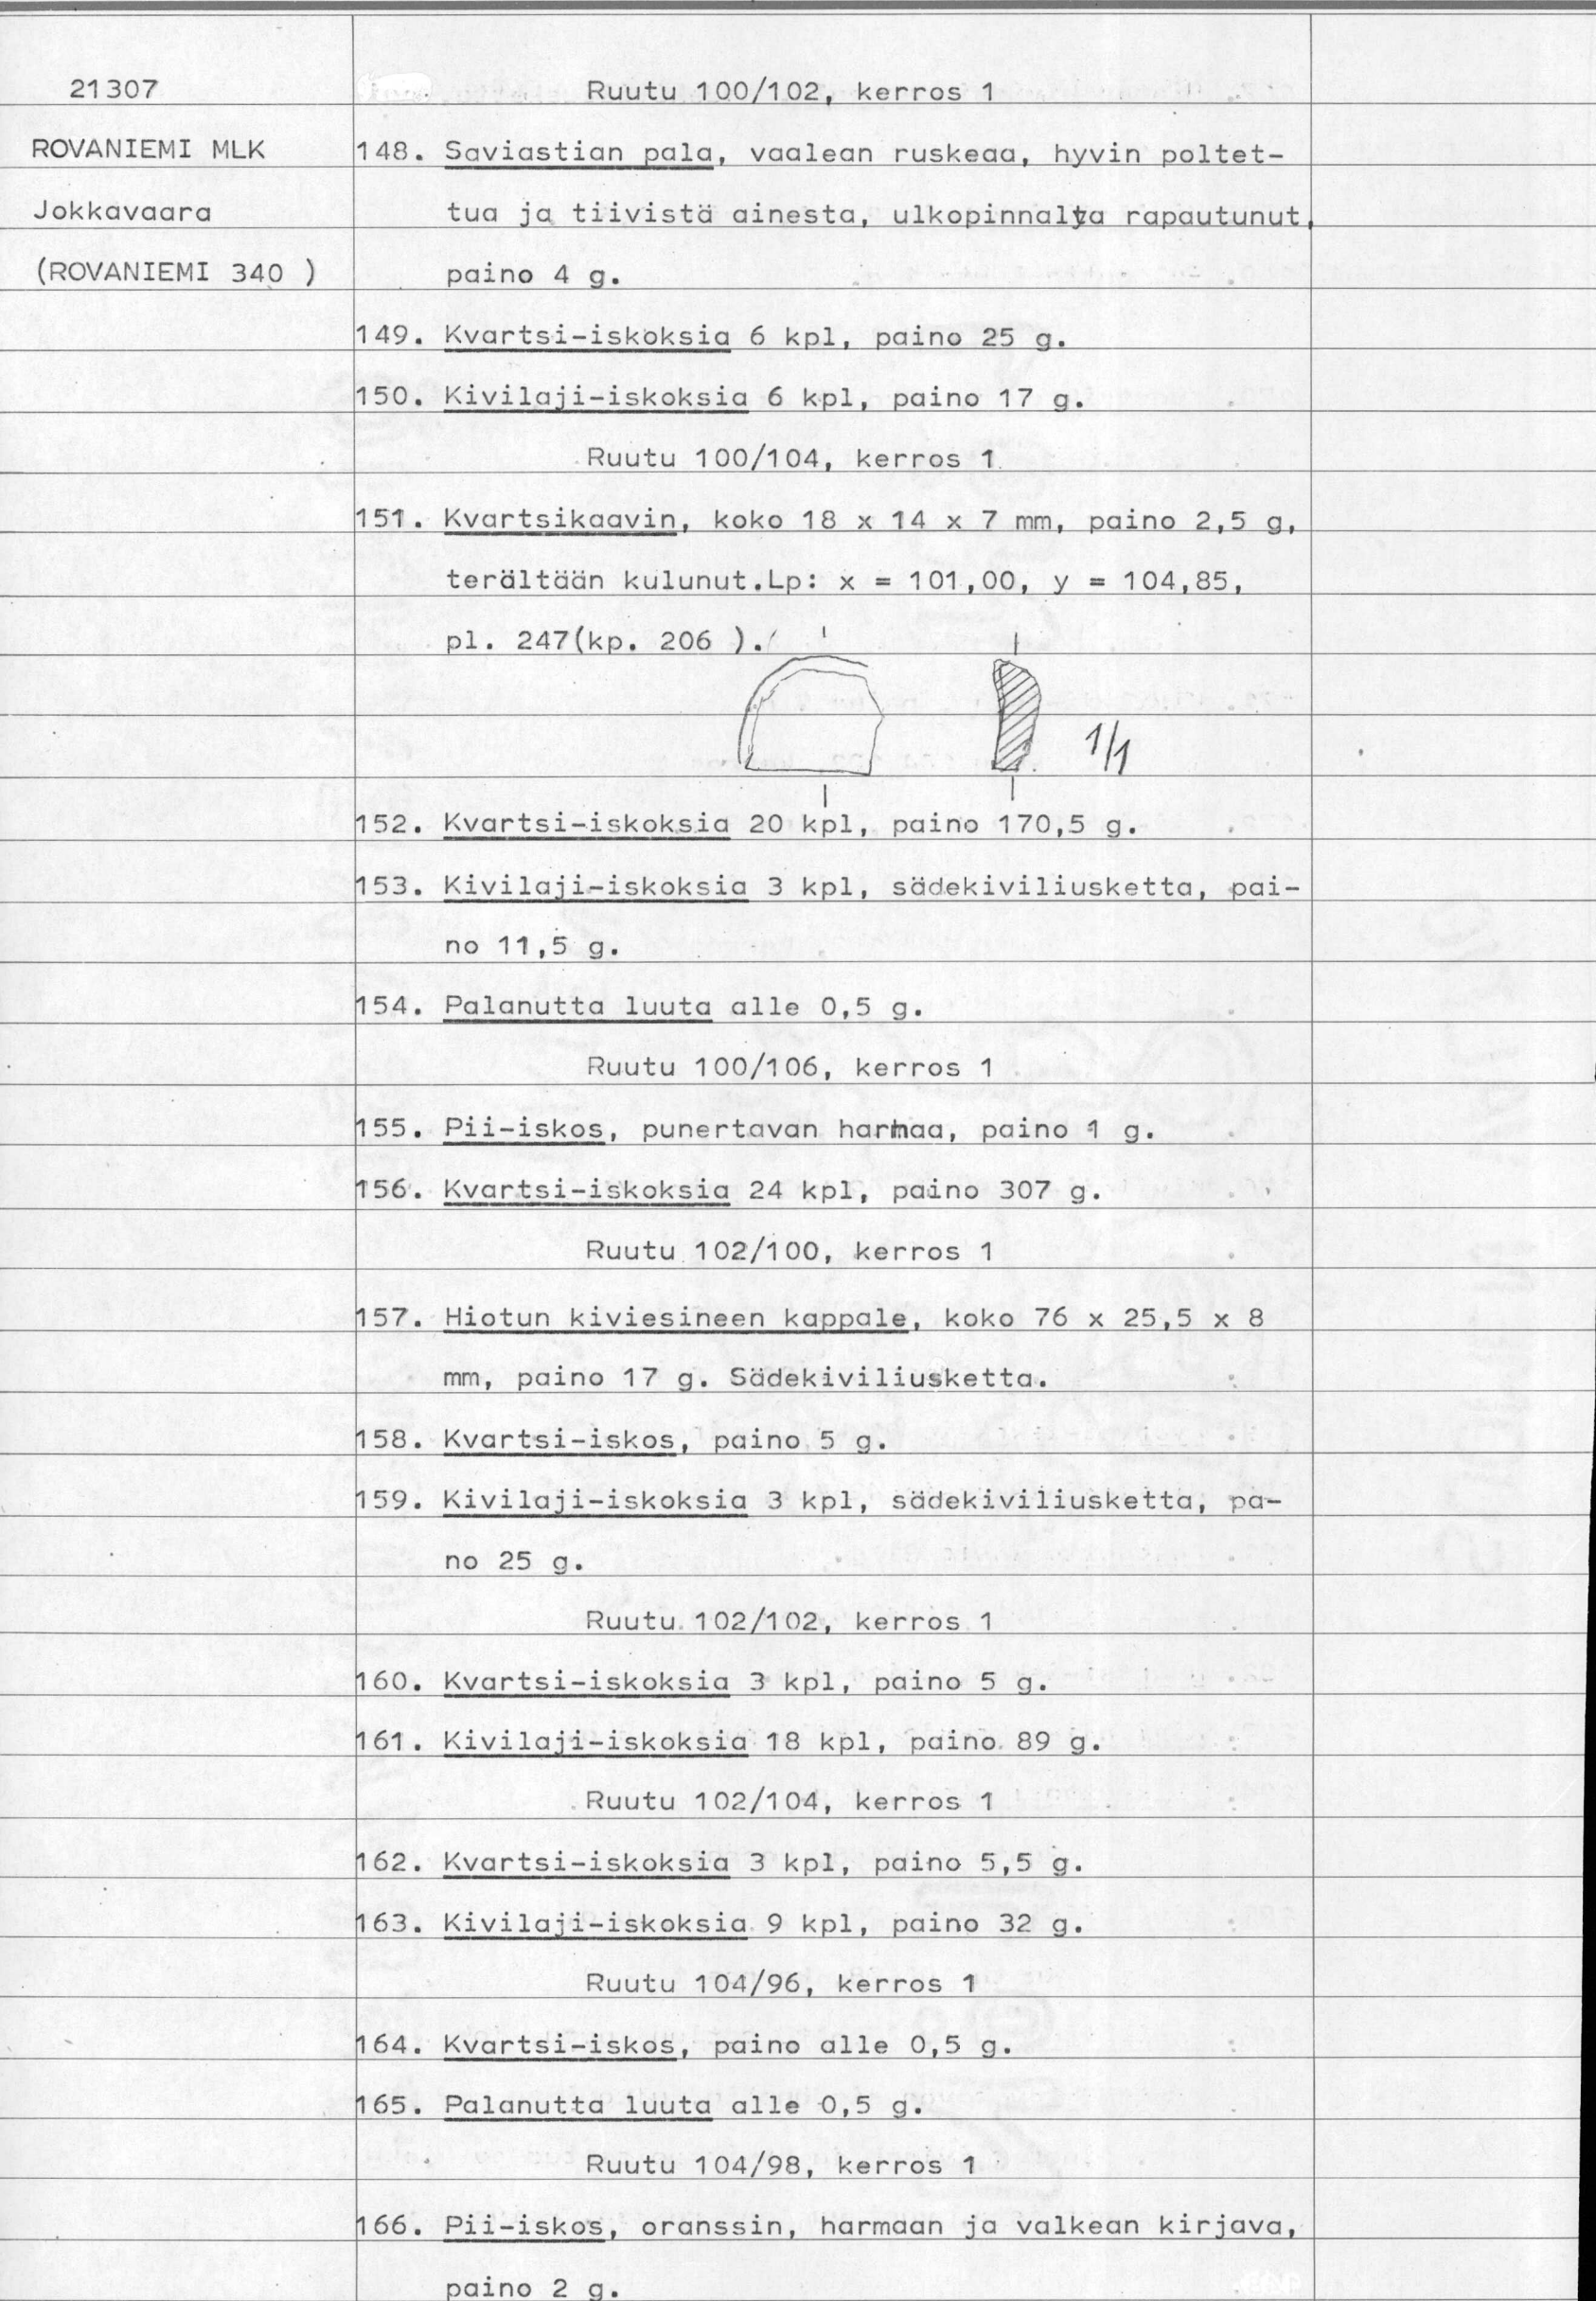 21307
Ruutu 100/102, kerros 1
ROVANIEMI MLK
148. Saviastian pala, vaalean ruskeaa, hyvin poltet-
Jokkavaara
tua ja tiivistä ainesta, ulkopinnalta rapautunut,
(ROVANIEMI 340 )
paino 4 g.
149. Kvartsi-iskoksia 6 kpl, paino 25 g.
150. Kivilaji-iskoksia 6 kpl, paino 17 g.
Ruutu 100/104, kerros 1
151. Kvartsikaavin, koko 18 x 14 x 7 mm, paino 2,5 g,
terältään kulunut.Lp: x = 101,00, y = 104,85,
pl. 247(kp. 206 ).
1/1
152. Kvartsi-iskoksia 20 kpl, paino 170,5 g.
153. Kivilaji-iskoksia 3 kpl, sädekiviliusketta, pai-
no 11,5 g.
154. Palanutta luuta alle 0,5 g.
Ruutu 100/106, kerros 1
155. Pii-iskos, punertavan harmaa, paino 1 g.
156. Kvartsi-iskoksia 24 kpl, paino 307 g.
Ruutu 102/100, kerros 1
157. Hiotun kiviesineen kappale, koko 76 x 25,5 x 8
mm, paino 17 g. Sädekiviliusketta.
158. Kvartsi-iskos, paino 5 g.
159. Kivilaji-iskoksia 3 kpl, sädekiviliusketta, pa-
no 25 g.
Ruutu 102/102, kerros 1
160. Kvartsi-iskoksia 3 kpl, paino 5 g.
161. Kivilaji-iskoksia 18 kpl, paino 89 g.
Ruutu 102/104, kerros 1
162. Kvartsi-iskoksia 3 kpl, paino 5,5 g.
163. Kivilaji-iskoksia 9 kpl, paino 32 g.
Ruutu 104/96, kerros 1
164. Kvartsi-iskos, paino alle 0,5 g.
165. Palanutta luuta alle 0,5 g.
Ruutu 104/98, kerros 1
166. Pii-iskos, oranssin, harmaan ja valkean kirjava,
paino 2 g.